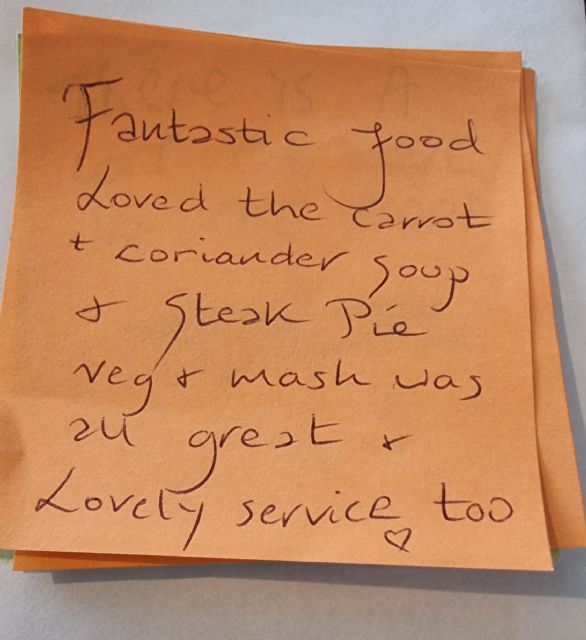 Fantastic food
Loved the carrot
+ coriander soup
& Steak Pie
veg & mash was
all great &
Lovely service too
♡